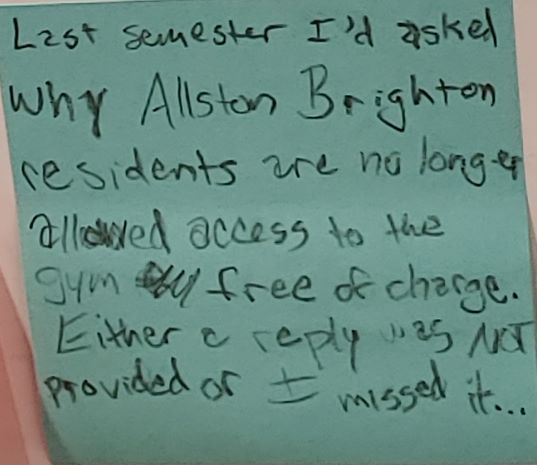 Last semester I'd asked
why Allston Brighton
residents are no longer
allowed access to the
gym free of charge.
Either a reply was NOT
provided or I missed it...